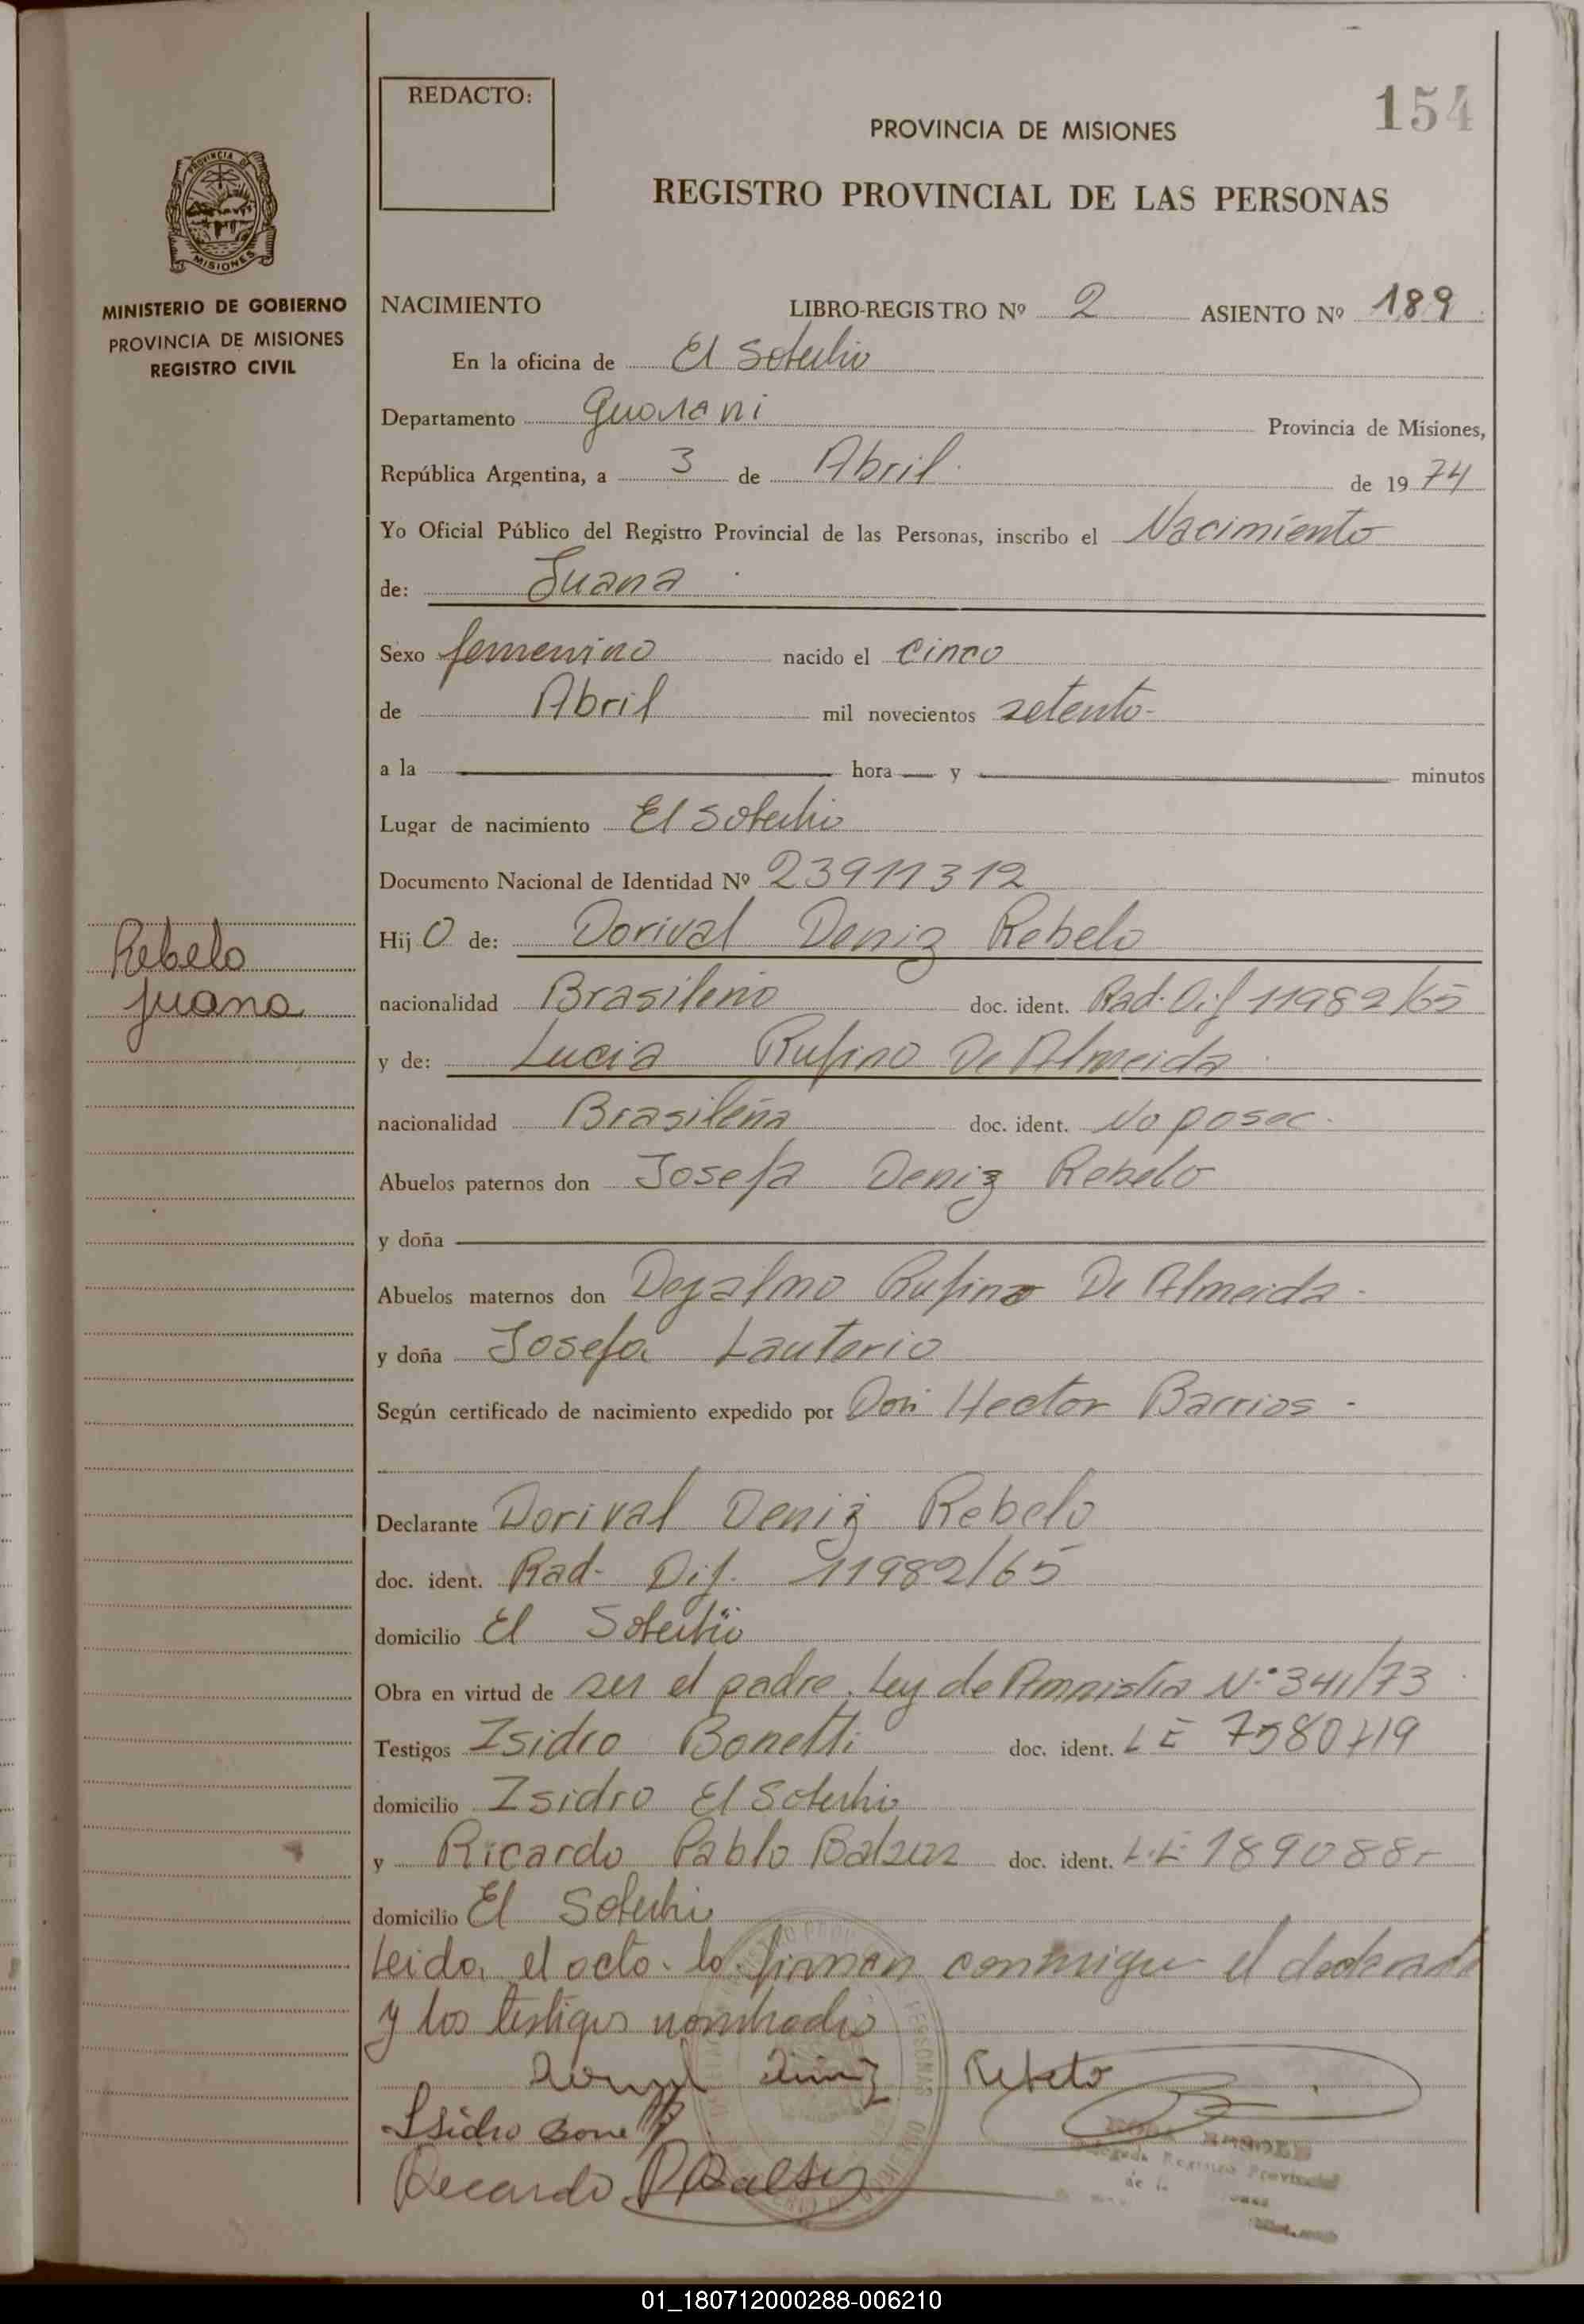 REDACTO:
154
PROVINCIA DE MISIONES
REGISTRO PROVINCIAL DE LAS PERSONAS
PROVINCIA DE
MISIONES
MINISTERIO DE GOBIERNO
PROVINCIA DE MISIONES
REGISTRO CIVIL
Rebelo
Juana
NACIMIENTO LIBRO-REGISTRO Nº 2 ASIENTO Nº 189
En la oficina de El Soberbio
Departamento Guarani Provincia de Misiones,
República Argentina, a 3 de Abril de 1974
Yo Oficial Público del Registro Provincial de las Personas, inscribo el Nacimiento
de: Juana
Sexo femenino nacido el cinco
de Abril mil novecientos setenta-
a la hora y minutos
Lugar de nacimiento El Soberbio
Documento Nacional de Identidad Nº 23911312
Hij O de: Dorival Deniz Rebelo
nacionalidad Brasileño doc. ident. Rad. Dif 11982/65
y de: Lucia Rufino De Almeida
nacionalidad Brasileña doc. ident. No posee.
Abuelos paternos don Josefa Deniz Rebelo
y doña
Abuelos maternos don Rufino De Almeida.
y doña Josefa Lauterio
Según certificado de nacimiento expedido por Don Hector Barrios -
Declarante Dorival Deniz Rebelo
doc. ident. Rad- Dif. 11982/65
domicilio El Soberbio
Obra en virtud de ser el padre. Ley de Amnistia Nº 341/73
Testigos Isidro Bonetti doc. ident. LE
domicilio Isidro El Soberbio
y Ricardo Pablo doc. ident. L.E
domicilio El Soberbio
Leida, el acto- lo firman conmigo el declarante
y los testigos nombrados
Rebelo
Isidro Bonetti
Recardo
01_180712000288-006210